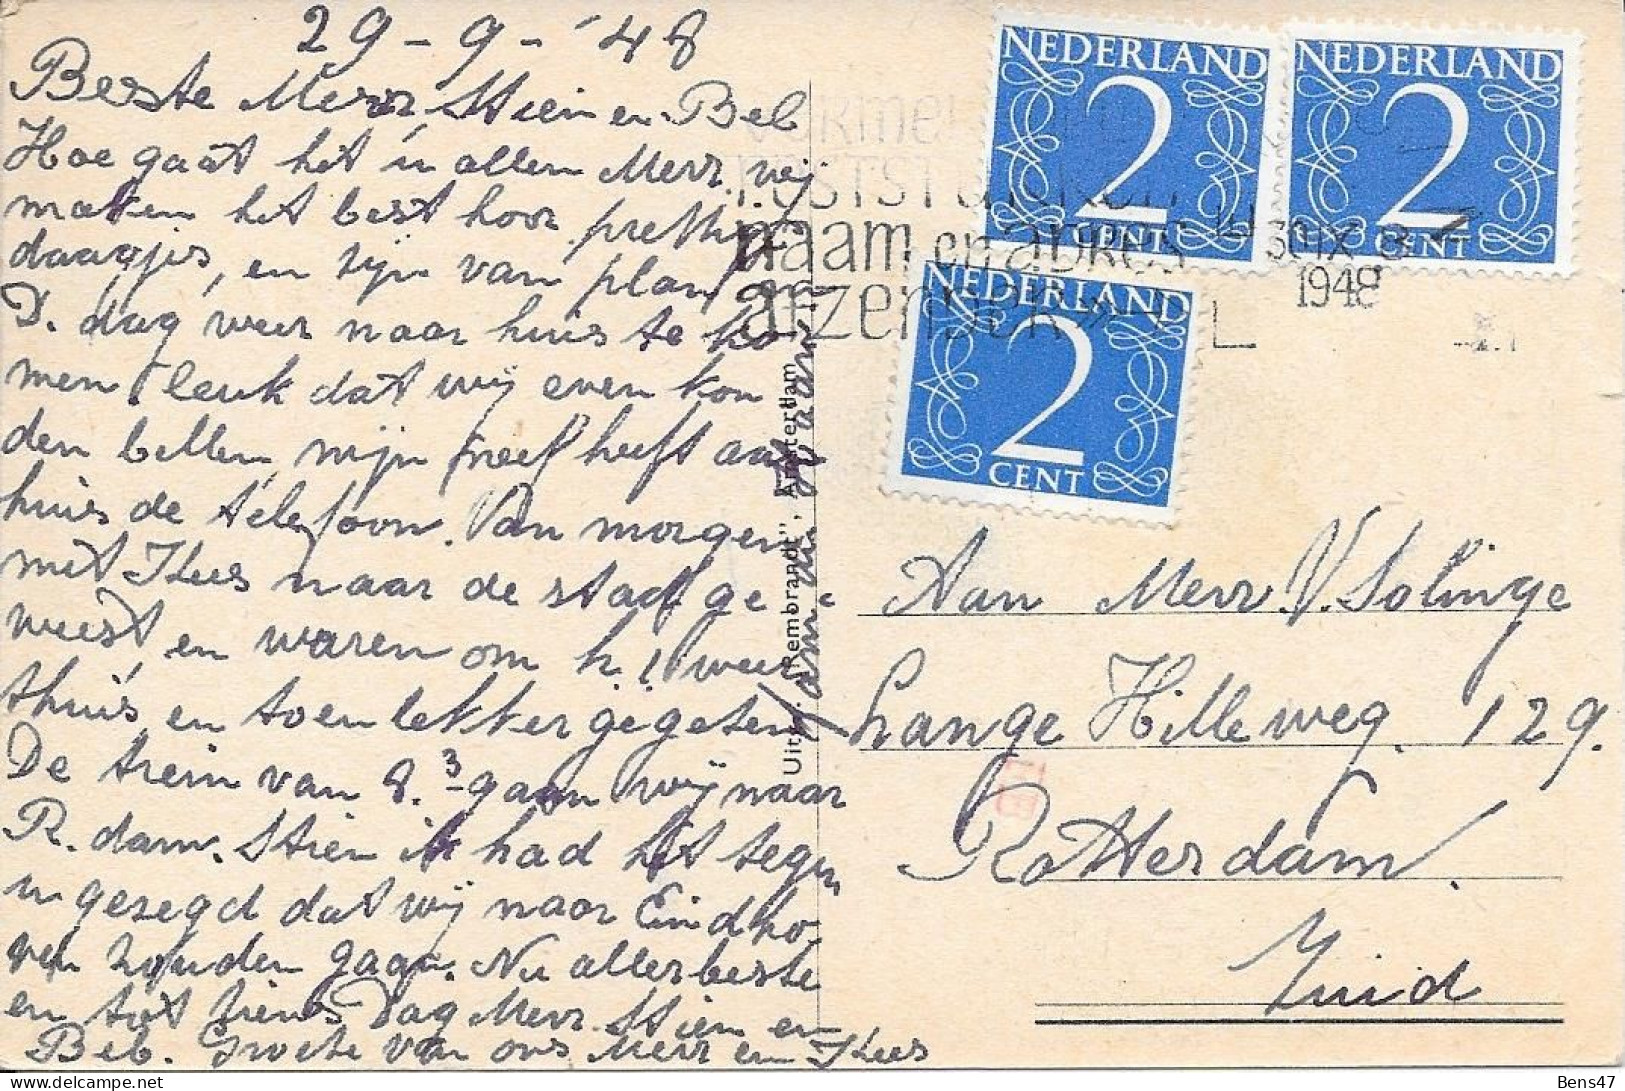 29-9-'48
Beste Mevr. Stien en Beb
Hoe gaat het u allen Mevr. wij
maken het best hoor, prettige
daagjes, en zijn van plan
D. dag weer naar huis te ko
men. leuk dat wij even kon
den bellen, mijn neef heeft aan
huis de telefoon. Van morgen
met Kees naar de stad ge
weest en waren om h. 1 weer
thuis, en toen lekker gegeten,
De trein van 8.3 gaan wij naar
R.dam. Stien ik had het tegen
u gesegd dat wij naar Eindho
ven zouden gaan. Nu allerbeste
en tot ziens Dag Mevr. Stien en
Beb. Groete van ons Mevr en Kees
Uitg. "Rembrandt", Amsterdam
NEDERLAND
2
CENT
NEDERLAND
2
CENT
NEDERLAND
2
CENT
naam en adres
afzender
30 IX 8
1948
Aan Mevr. V. Solinge
Lange Hilleweg. 129.
Rotterdam.
Zuid
Bens47